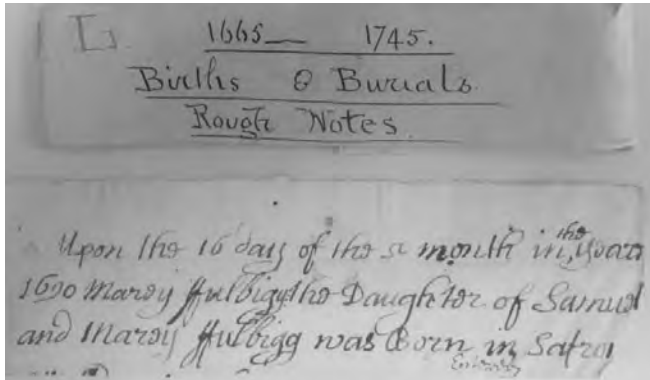 1665 — 1745.
Births & Burials.
Rough Notes.
Upon the 16 day of the month in the year
1690 Marey ffulbigg the Daughter of Samuel
and Marey ffulbigg was Born in